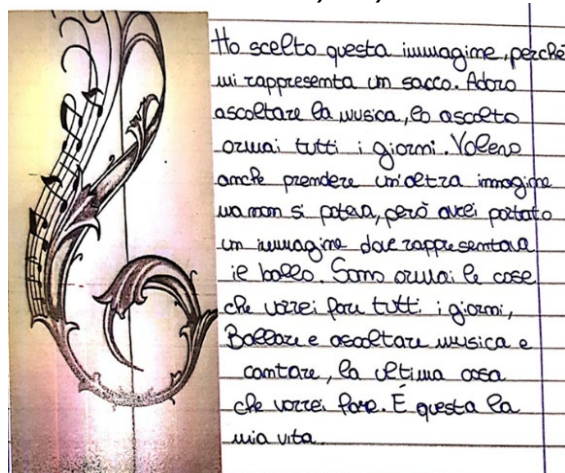 Ho scelto questa immagine, perché
mi rappresenta un sacco. Adoro
ascoltare la musica, lo ascolto
ormai tutti i giorni. Volevo
anche prendere un'altra immagine
ma non si poteva, però avrei portato
un immagine dove rappresentava
il ballo. Sono ormai le cose
che vorrei fare tutti i giorni,
Ballare e ascoltare musica e
cantare, la ultima cosa
che vorrei fare. É questa la
mia vita.